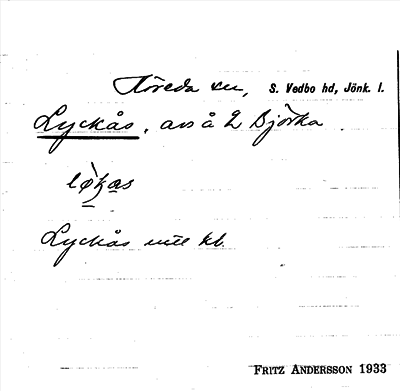 Höreda sn, S. Vedbo hd, Jönk. l.
Lyckås, avs å 2 Björka
Lyckås
FRITZ ANDERSSON 1933